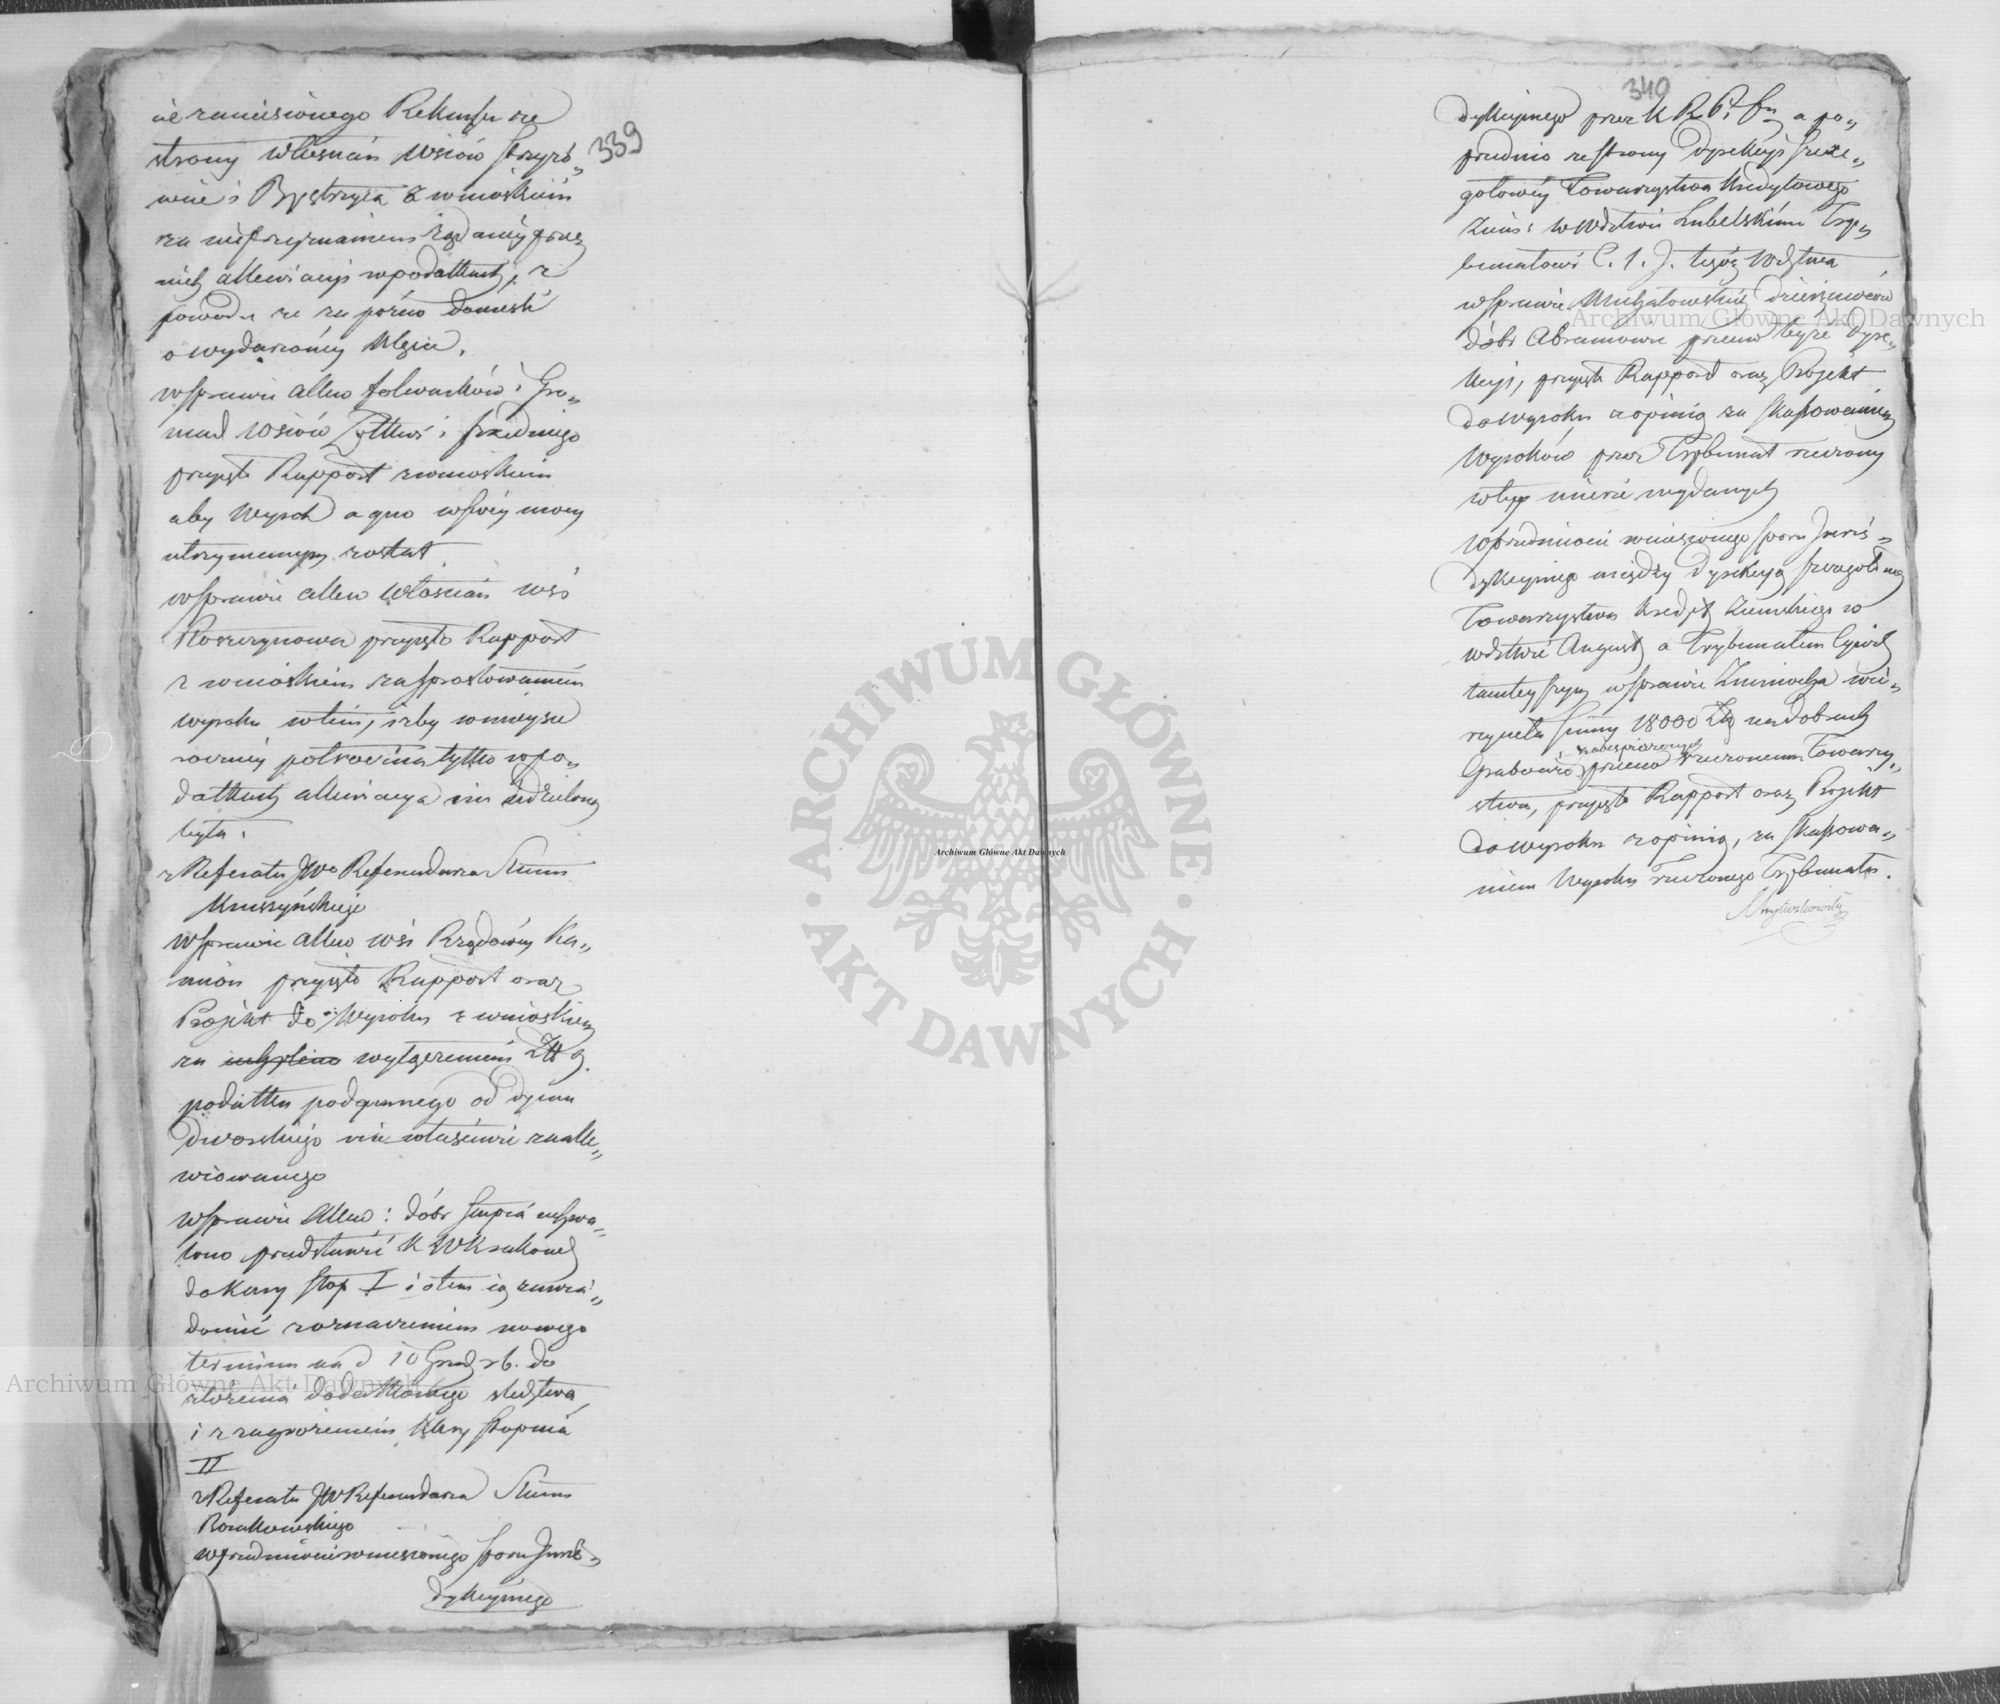 339
nie zaniesionego Rekursu ze
strony włościan wsiów Strzyżo„
wie i Bystrzyca z wnioskiem
za nieprzyznaniem żądanéy przez
nich allewiacyi w podatkach, z
powodu że za późno donieśli
o wydarzonéy klęsce.
w sprawie allew folwarków i Gro„
mad wsiów Żółtki i
przyjęto Rapport z wnioskiem
aby Wyrok a quo w swéy mocy
utrzymanym został.
w sprawie allew włościan wsi
Roszczynowa przyjęto Rapport
z wnioskiem za sprostowaniem
wyroku w tém, iżby w mieysce
roczniéy półroczna tylko w po„
datkach allewiacya im udzieloną
była.
z Referatu JWo Referendarza Stanu
Kruszyńskiego
w sprawie allew wsi Rządowéy Ka„
mion przyjęto Rapport oraz
Projekt do Wyroku z wnioskiem
za wyłączeniem Złł 9.
podatku podymnego od dymu
Dworskiego nie właściwie zaalle„
wiowanego
w sprawie Allew: dóbr Słupia uchwa„
lono przedstawić K W Krakowsk
do kary stop I i o tem ią zawia„
domić z oznaczeniem nowego
terminu na d 10 Grud r b. do
złożenia dodatkowego śledztwa,
i z zagrożeniem kary stopnia
II
z Referatu JW Referendarza Stanu
w przedmiocie wniesionego sporu Juris„
dykcyinego
340
dykcyinego przez K R P. i Sk a po„
przednio ze strony Dyrekcyi Szcze„
gołowéy Towarzystwa Kredytowego
Ziems: w Wdztwie Lubelskim Try„
bunałowi C. 1. J. tegoż Wdztwa
w sprawie Michałowskiéy dzierżawców
dóbr Abramowic przeciw teyże Dyre„
kcyi, przyjęto Rapport oraz Projekt
do wyroku z opinią za skassowaniem
Wyroków przez Trybunał rzeczony
w téy mierze wydanych
w przedmiocie wniesionego sporu Juris„
dykcyinego między Dyrekcyą szczegółową
Towarzystwa Kredyt Ziemskiego w
wdztwie August a Trybunałem Cywil
tamteyszym w sprawie wie„
rzyciela Summy 18000 Złp na dobrach
zabespieczonych
Grabowie przeciw rzeczonemu Towarzy„
stwu, przyjęto Rapport oraz Projekt
do wyroku z opinią, za skassowa„
niem Wyroku rzeczonego Trybunału.
Archiwum Główne Akt Dawnych
Archiwum Główne Akt Dawnych
Archiwum Główne Akt Dawnych
ARCHIWUM GŁÓWNE · AKT DAWNYCH ·